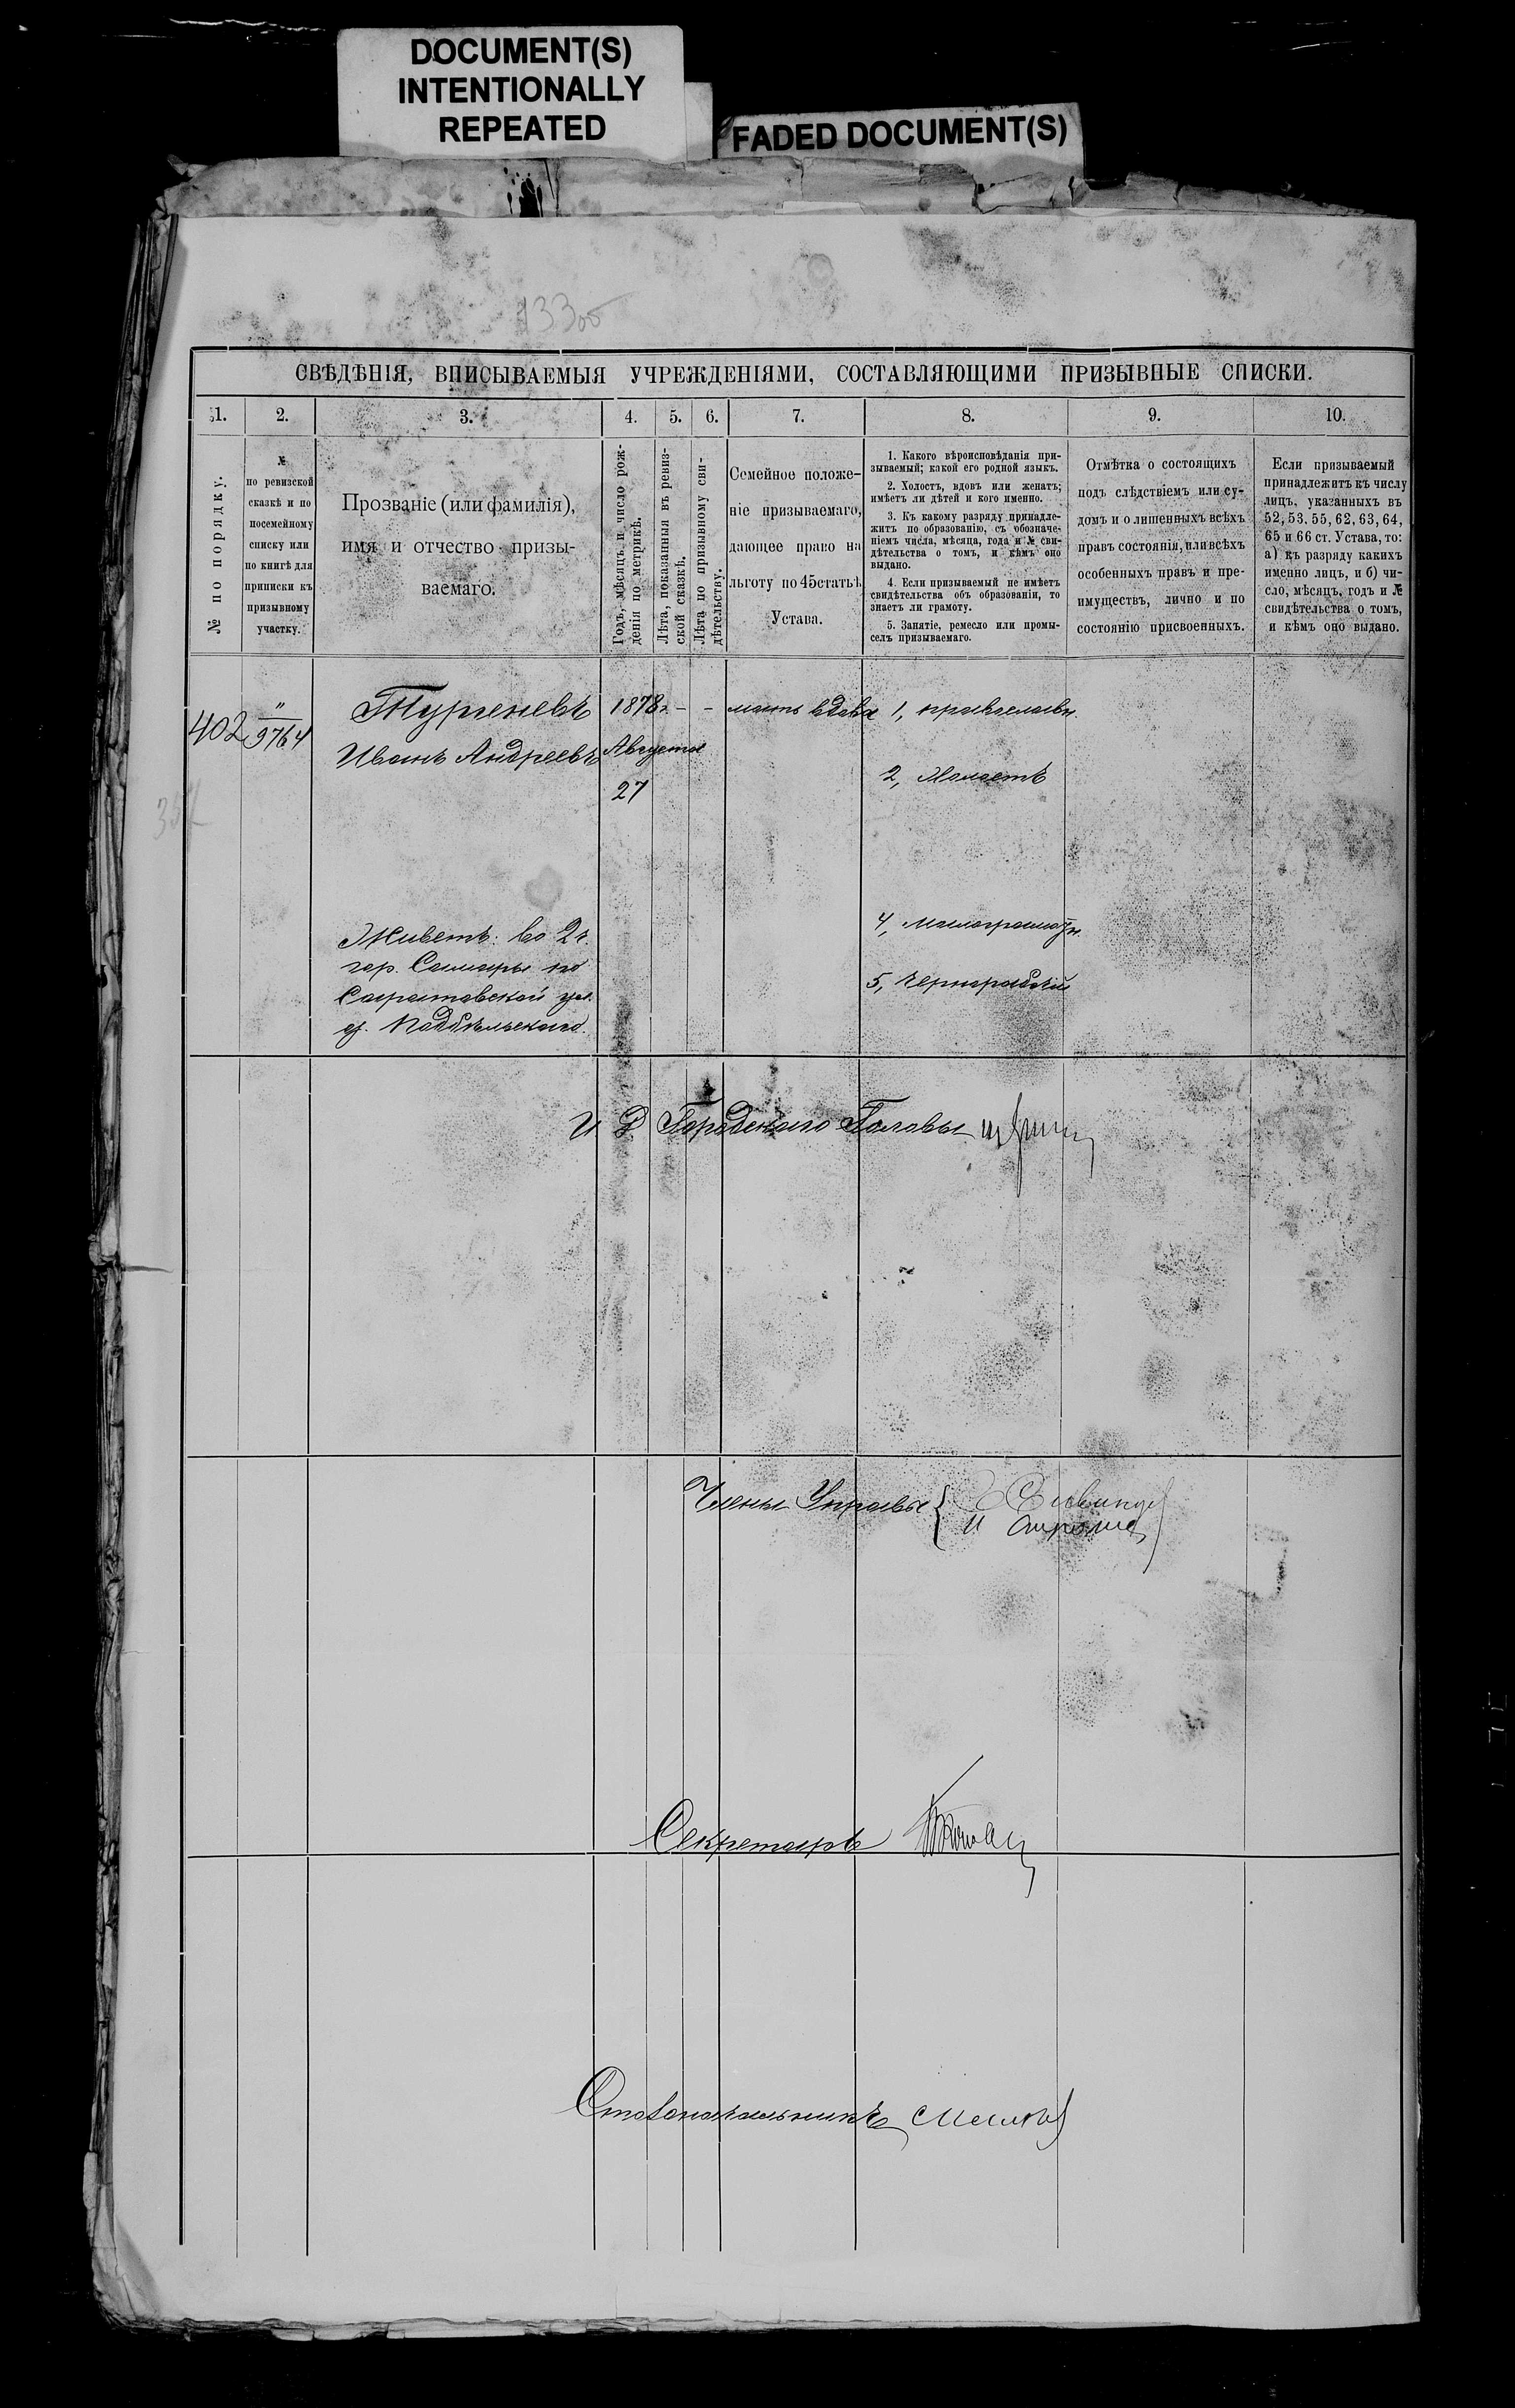 DOCUMENT(S)
INTENTIONALLY
REPEATED
FADED DOCUMENT(S)
133об
СВѢДѢНІЯ, ВПИСЫВАЕМЫЯ УЧРЕЖДЕНІЯМИ, СОСТАВЛЯЮЩИМИ ПРИЗЫВНЫЕ СПИСКИ.
1. 2. 3. 4. 5. 6. 7. 8. 9. 10.
№ по порядку.
№
по ревизской
сказкѣ и по
посемейному
списку или
по книгѣ для
приписки къ
призывному
участку.
Прозваніе (или фамилія),
имя и отчество призы-
ваемаго.
Годъ, мѣсяцъ и число рож-
денія по метрикѣ.
Лѣта, показанныя въ ревиз-
ской сказкѣ.
Лѣта по призывному сви-
дѣтельству.
Семейное положе-
ніе призываемаго,
дающее право на
льготу по 45 статьѣ
Устава.
1. Какого вѣроисповѣданія при-
зываемый; какой его родной языкъ.
2. Холостъ, вдовъ или женатъ;
имѣетъ ли дѣтей и кого именно.
3. Къ какому разряду принадле-
житъ по образованію, съ обозначе-
ніемъ числа, мѣсяца, года и № сви-
дѣтельства о томъ, и кѣмъ оно
выдано.
4. Если призываемый не имѣетъ
свидѣтельства объ образованіи, то
знаетъ ли грамоту.
5. Занятіе, ремесло или промы-
селъ призываемаго.
Отмѣтка о состоящихъ
подъ слѣдствіемъ или су-
домъ и о лишенныхъ всѣхъ
правъ состоянія, или всѣхъ
особенныхъ правъ и пре-
имуществъ, лично и по
состоянію присвоенныхъ.
Если призываемый
принадлежитъ къ числу
лицъ, указанныхъ въ
52, 53, 55, 62, 63, 64,
65 и 66 ст. Устава, то:
а) къ разряду какихъ
именно лицъ, и б) чи-
сло, мѣсяцъ, годъ и №
свидѣтельства о томъ,
и кѣмъ оно выдано.
402
"
9764
Тургеневъ
Иванъ Андреевъ
1878 г.
Августа
27
- -
мать вдова
1, православн.
2, Холостъ
4, Малограмотн.
5, Чернорабочій
Живетъ: во 2 ч.
гор. Самары по
Саратовской ул.
д. Поддѣльскаго.
И Д Городскаго Головы
Члены Управы {
Секретарь
Столоначальникъ